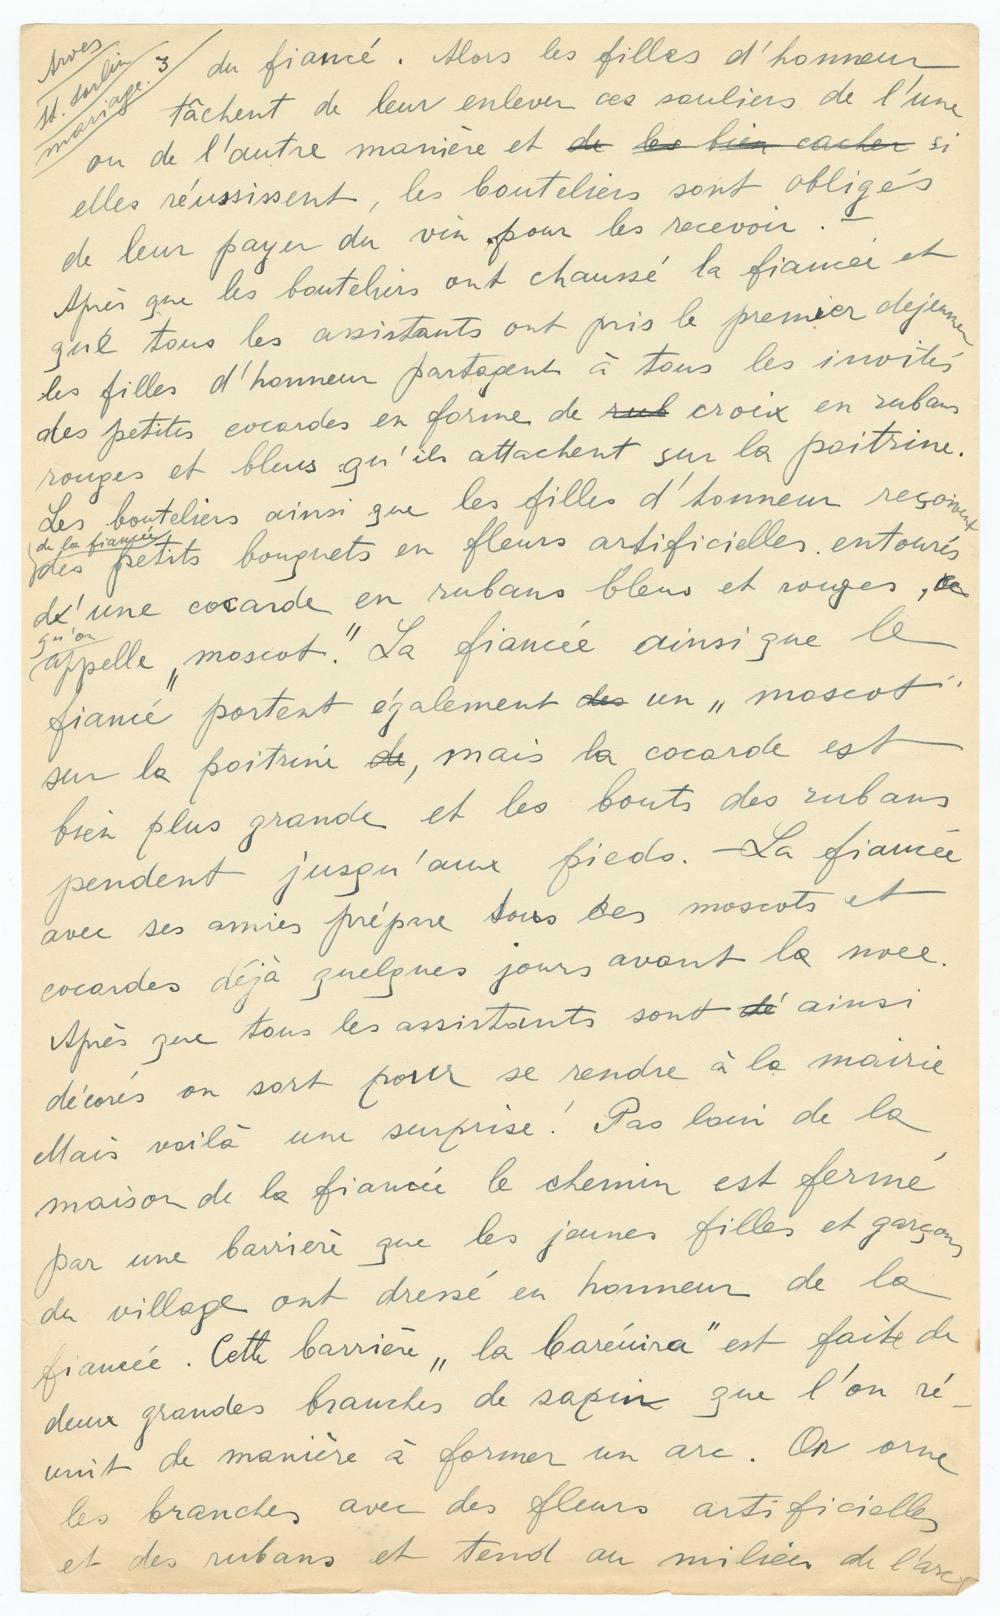 Arves
St. Sorlin
mariage. 3
du fiancé. Alors les filles d'honneur
tâchent de leur enlever ces souliers de l'une
ou de l'autre manière et de les bien cacher si
elles réussissent, les bouteliers sont obligés
de leur payer du vin pour les recevoir. —
Après que les bouteliers ont chaussé la fiancée et
que tous les assistants ont pris le premier dejeuner
les filles d'honneur partagent à tous les invités
des petites cocardes en forme de rub croix en rubans
rouges et bleus qu'ils attachent sur la poitrine.
Les bouteliers ainsi que les filles d'honneur reçoivent
(de la fiancée
des petits bouquets en fleurs artificielles entourés
d'une cocarde en rubans bleus et rouges, ce
qu'on
(appelle „moscot". La fiancée ainsi que le
fiancé portent également des un „moscot"
sur la poitrine de, mais la cocarde est
bien plus grande et les bouts des rubans
pendent jusqu'aux pieds. — La fiancée
avec ses amies prépare tous les moscots et
cocardes déjà quelques jours avant la noce.
Après que tous les assistants sont dé ainsi
décorés on sort pour se rendre à la mairie
Mais voilà une surprise! Pas loin de la
maison de la fiancée le chemin est fermé
par une barrière que les jeunes filles et garçons
du village ont dressé en honneur de la
fiancée. Cette barrière „la baréuira" est faite de
deux grandes branches de sapin que l'on ré-
unit de manière à former un arc. On orne
les branches avec des fleurs artificielles
et des rubans et tend au milieu de l'arc